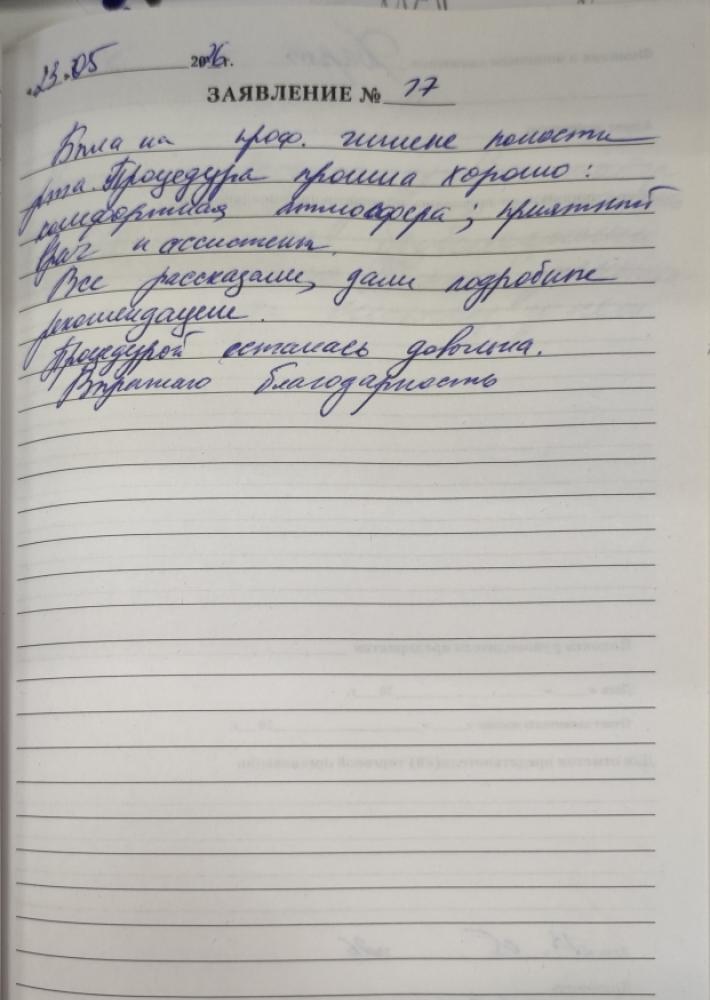 «23» 05 2026 г.
ЗАЯВЛЕНИЕ № 17
Была на проф. гигиене полости
рта. Процедура прошла хорошо:
комфортная атмосфера; приятный
врач и ассистент.
Все рассказали, дали подробные
рекомендации.
Процедурой осталась довольна.
Выражаю благодарность